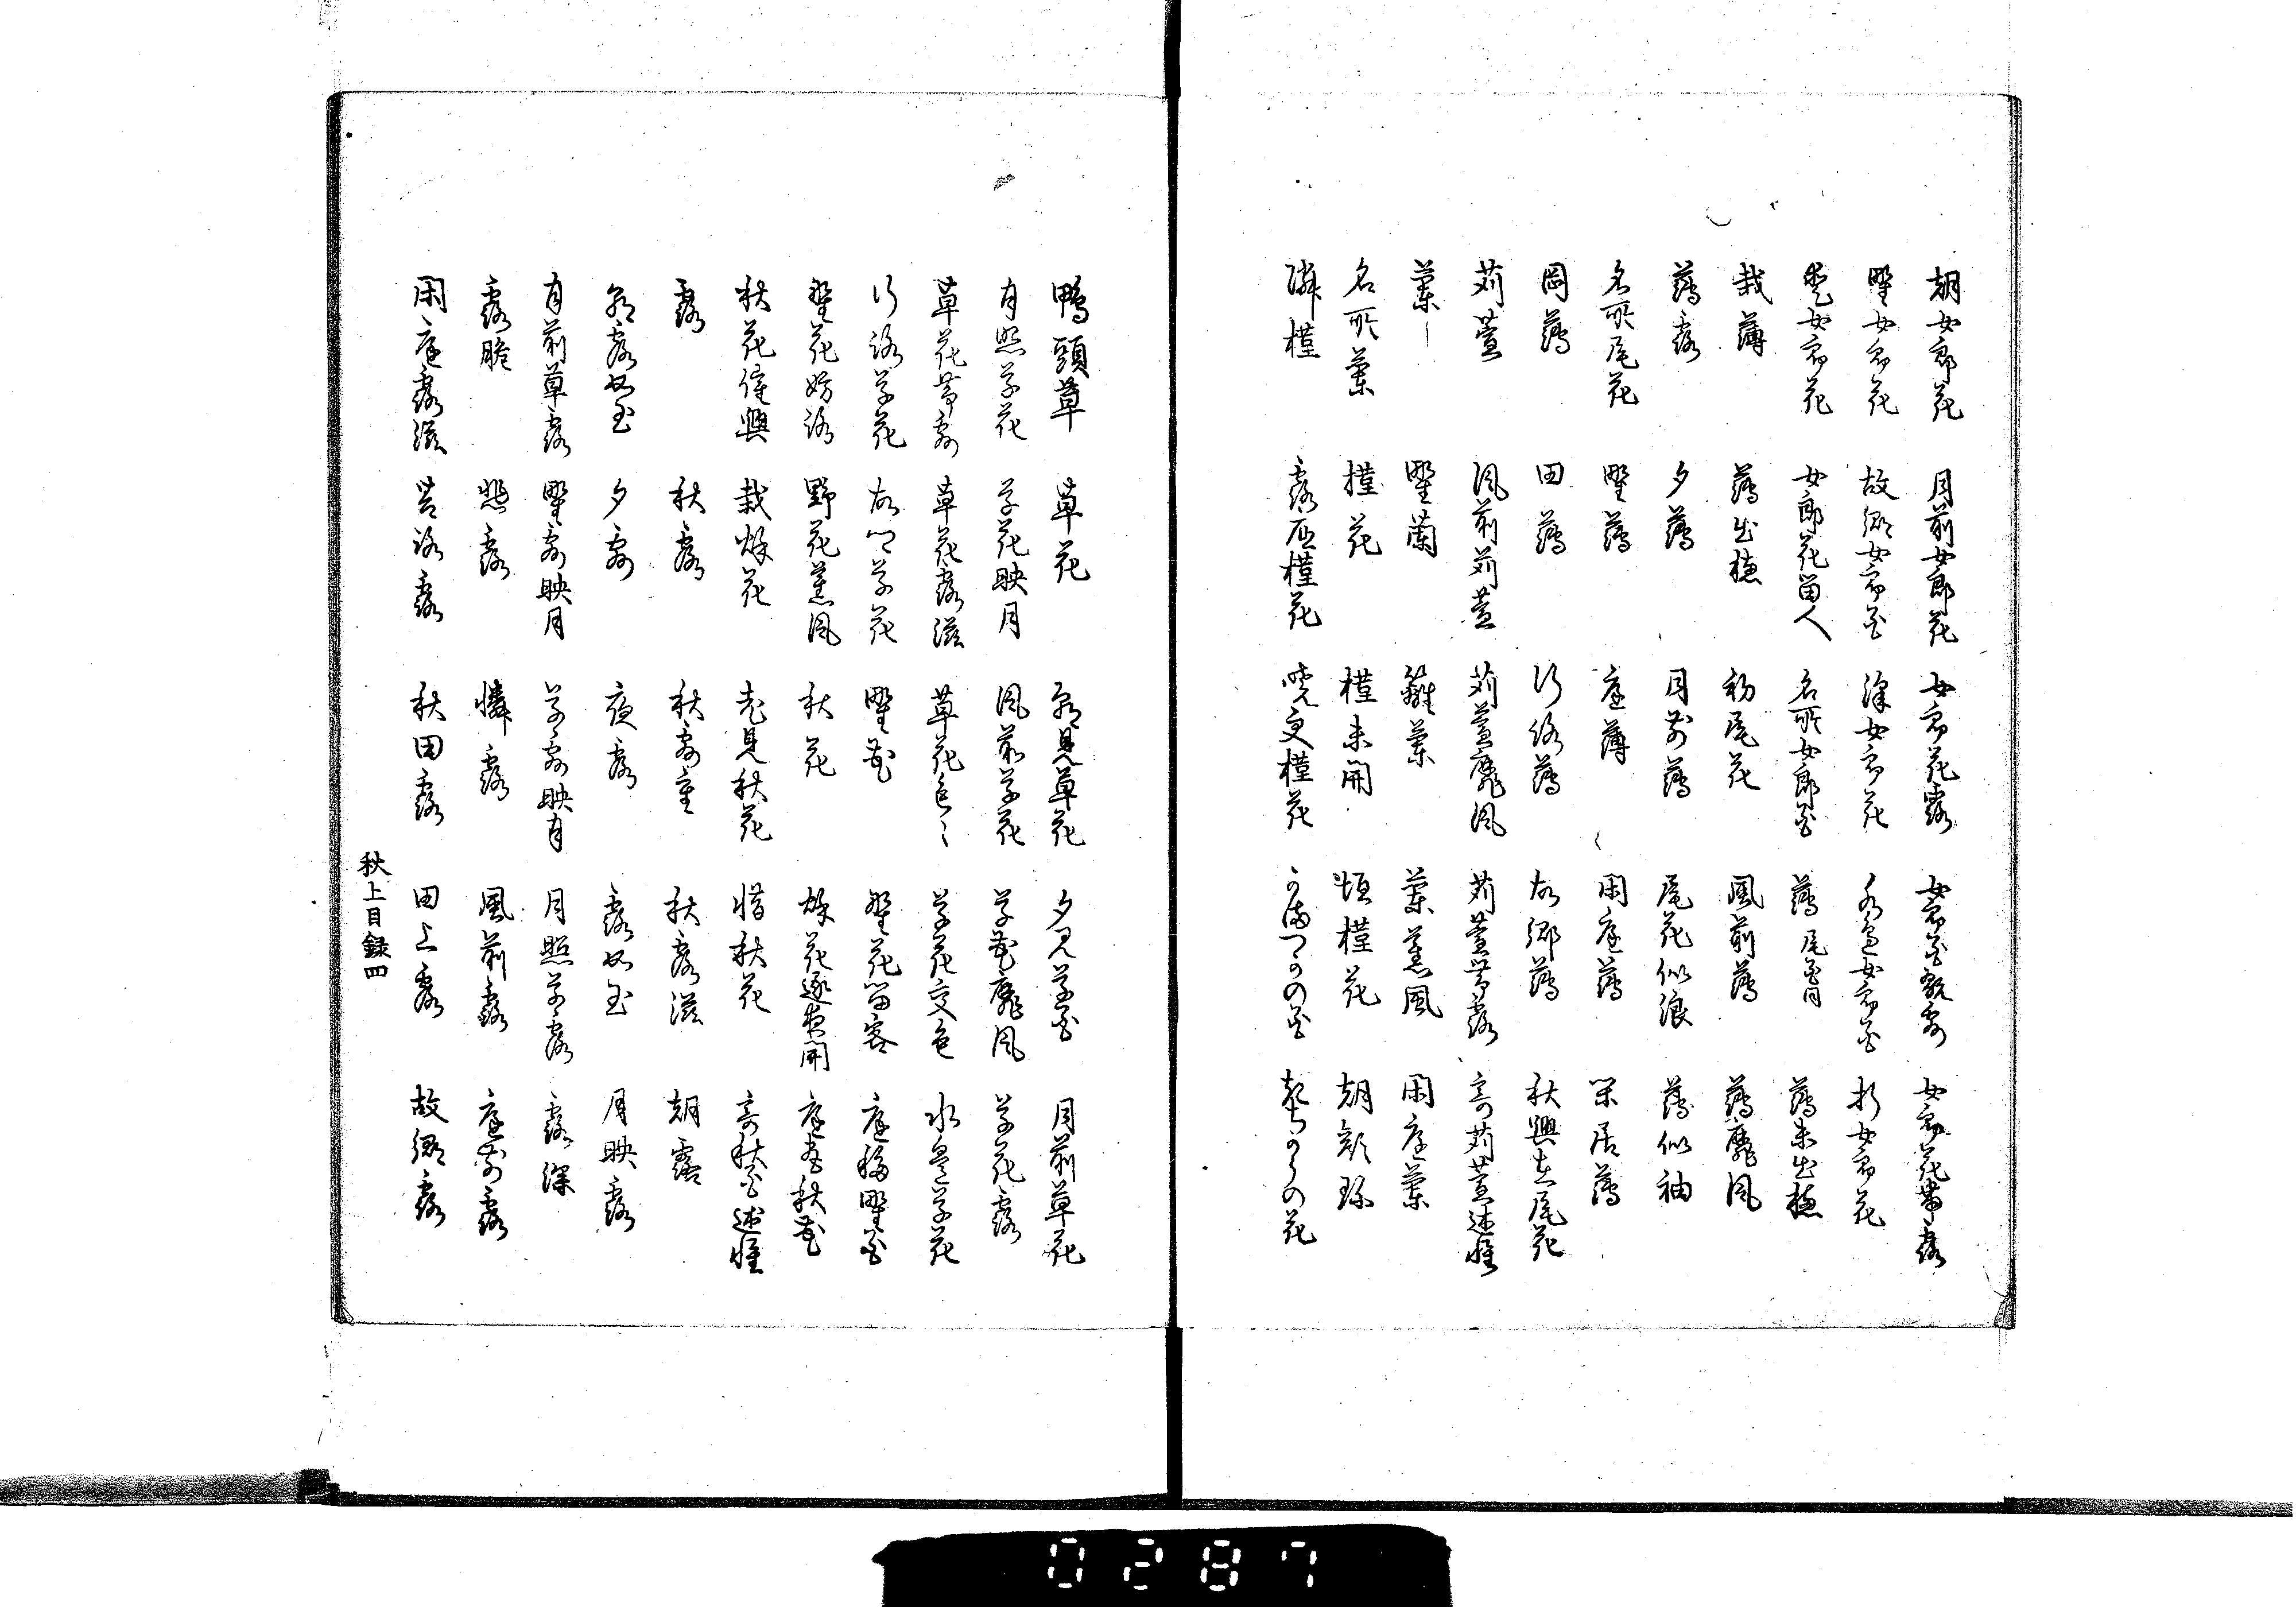 朝女郎花 月前女郎花 女郎花露 女郎花靡露 女郎花帯露
野女郎花 故郷女郎花 深女郎花 水辺女郎花 折女郎花
女郎花 女郎花留人 名所女郎花 薄 尾花同 薄未出穂
栽薄 薄出穂 初尾花 風前薄 薄靡風
薄露 夕薄 月前薄 尾花似浪 薄似袖
名所尾花 野薄 庭薄 閑庭薄 閑居薄
岡薄 田薄 行路薄 故郷薄 秋興在尾花
苅萱 風前苅萱 苅萱靡風 苅萱帯露 寄苅萱述懐
蘭 野蘭 籬蘭 蘭薫風 閑庭蘭
名所蘭 槿花 槿未開 垣槿花 朝顔
隣槿 露底槿花 暁更槿花
鴨頭草 草花 朝見草花 夕見草花 月前草花
月照草花 草花映月 風前草花 草花靡風 草花露
草花帯露 草花露滋 草花色々 草花交色 水辺草花
行路草花 故郷草花 野花 野花留客 庭移野花
野花妨路 野花薫風 秋花 秋花逐夜開 庭秋花
秋花催興 栽秋花 遠見秋花 惜秋花 寄秋花述懐
露 秋露 秋露重 秋露滋 朝露
朝露如玉 夕露 夜露 露如玉 月映露
月前草露 野露映月 草露映月 月照草露 露深
露脆 愁露 憐露 風前露 庭前露
閑庭露滋 苔路露 秋田露 田上露 故郷露
秋上目録四
0287